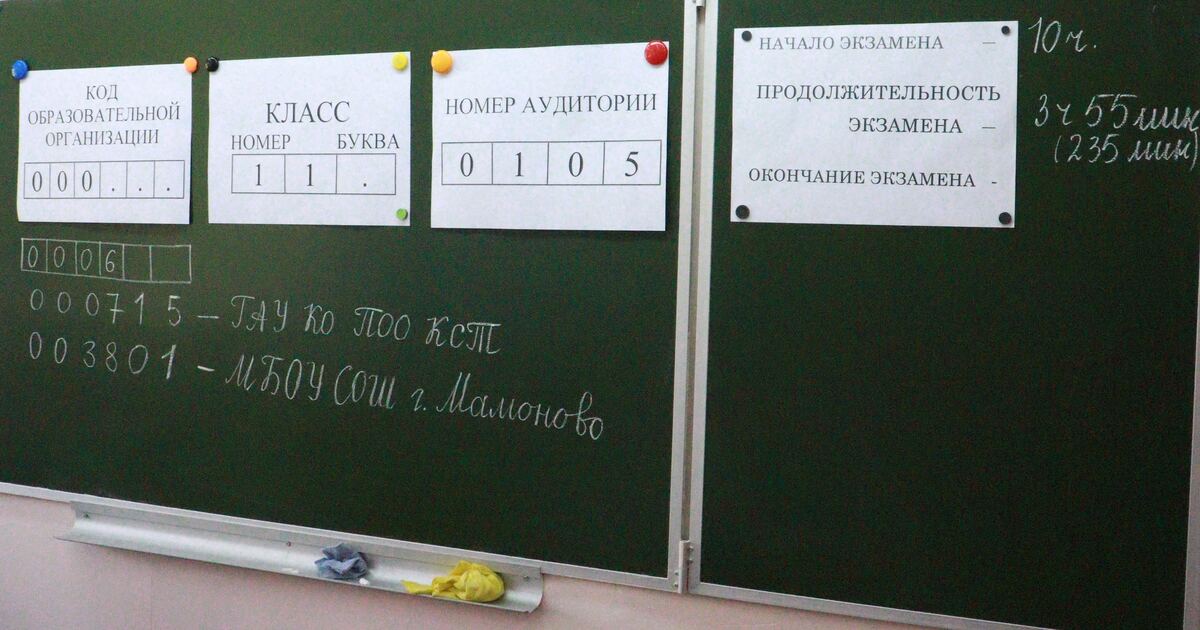 КОД
ОБРАЗОВАТЕЛЬНОЙ
ОРГАНИЗАЦИИ
0 0 0 . . .
КЛАСС
НОМЕР БУКВА
1 1 .
НОМЕР АУДИТОРИИ
0 1 0 5
0 0 0 6
000715 – ГАУ КО ПОО КсТ
003801 – МБОУ СОШ г. Мамоново
НАЧАЛО ЭКЗАМЕНА – 10 ч.
ПРОДОЛЖИТЕЛЬНОСТЬ
ЭКЗАМЕНА – 3 ч 55 мин
(235 мин)
ОКОНЧАНИЕ ЭКЗАМЕНА -